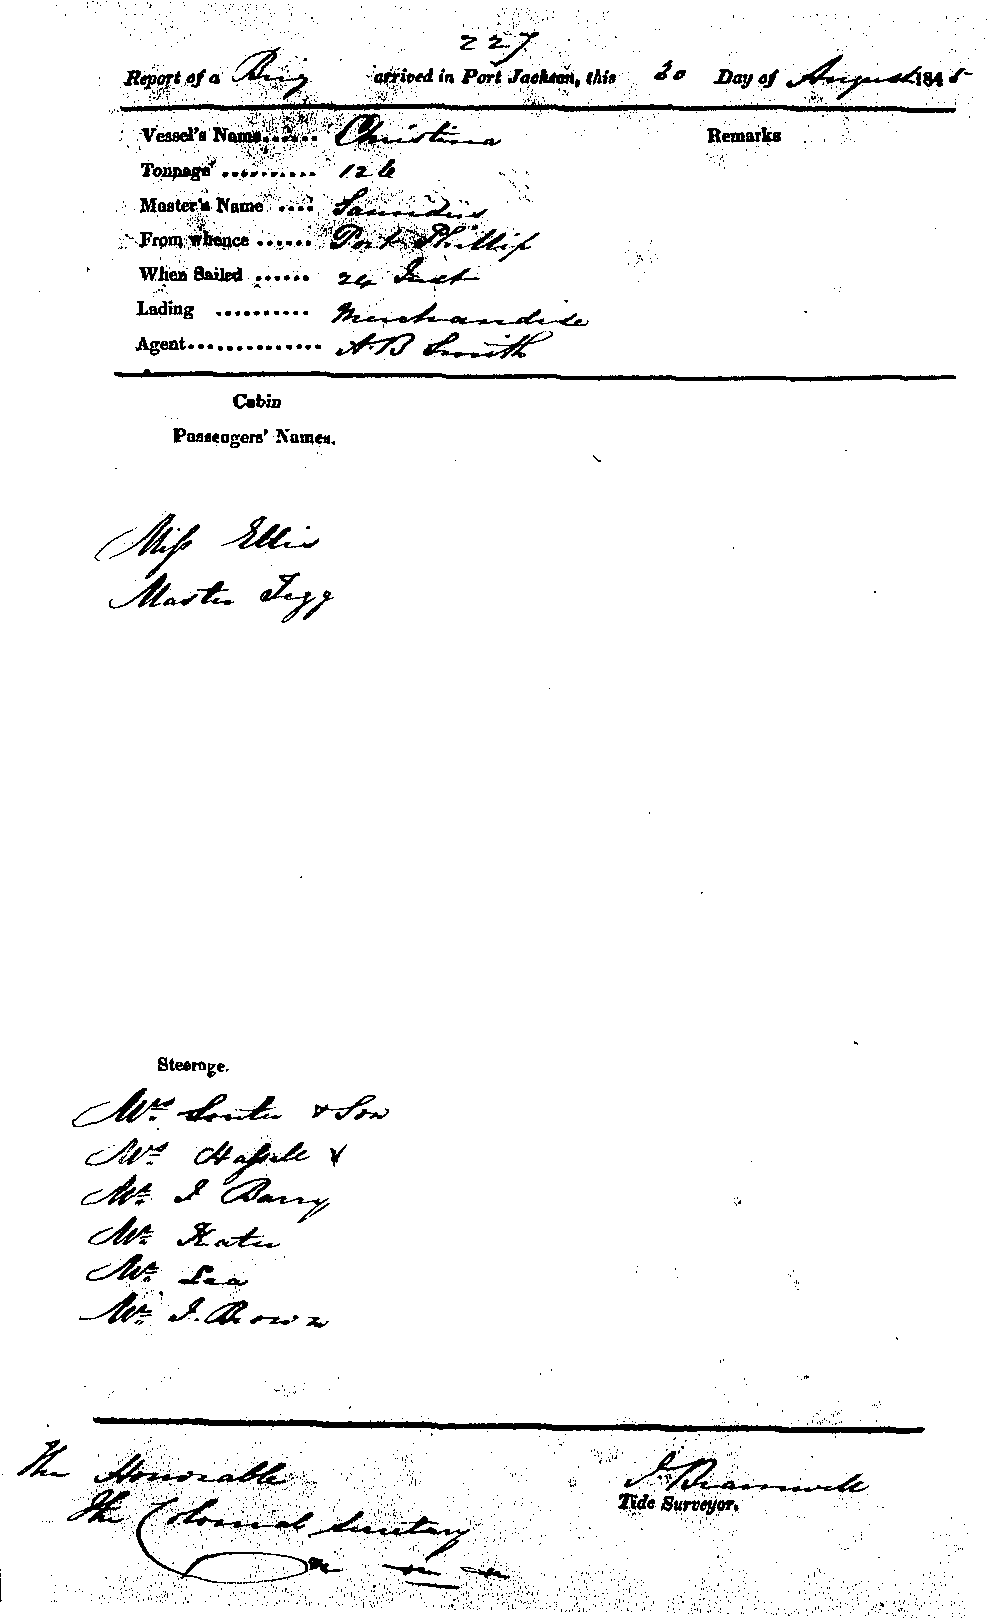 227
Report of a Brig arrived in Port Jackson, this 30 Day of August 1845
Vessel's Name...... Christina
Remarks
Tonnage .......... 126
Master's Name .... Saunders
From whence ...... Port Phillip
When Sailed ...... 24 Inst
Lading .......... Merchandise
Agent.............. A B Smith
Cabin
Passengers' Names.
Miss Ellis
Master Tegg
Steerage.
Mrs Souter & Son
Mrs
Mr J Barry
Mr
Mr Lea
Mr J. Brown
The Honorable
The Colonial Secretary
J. Bramwell
Tide Surveyor.